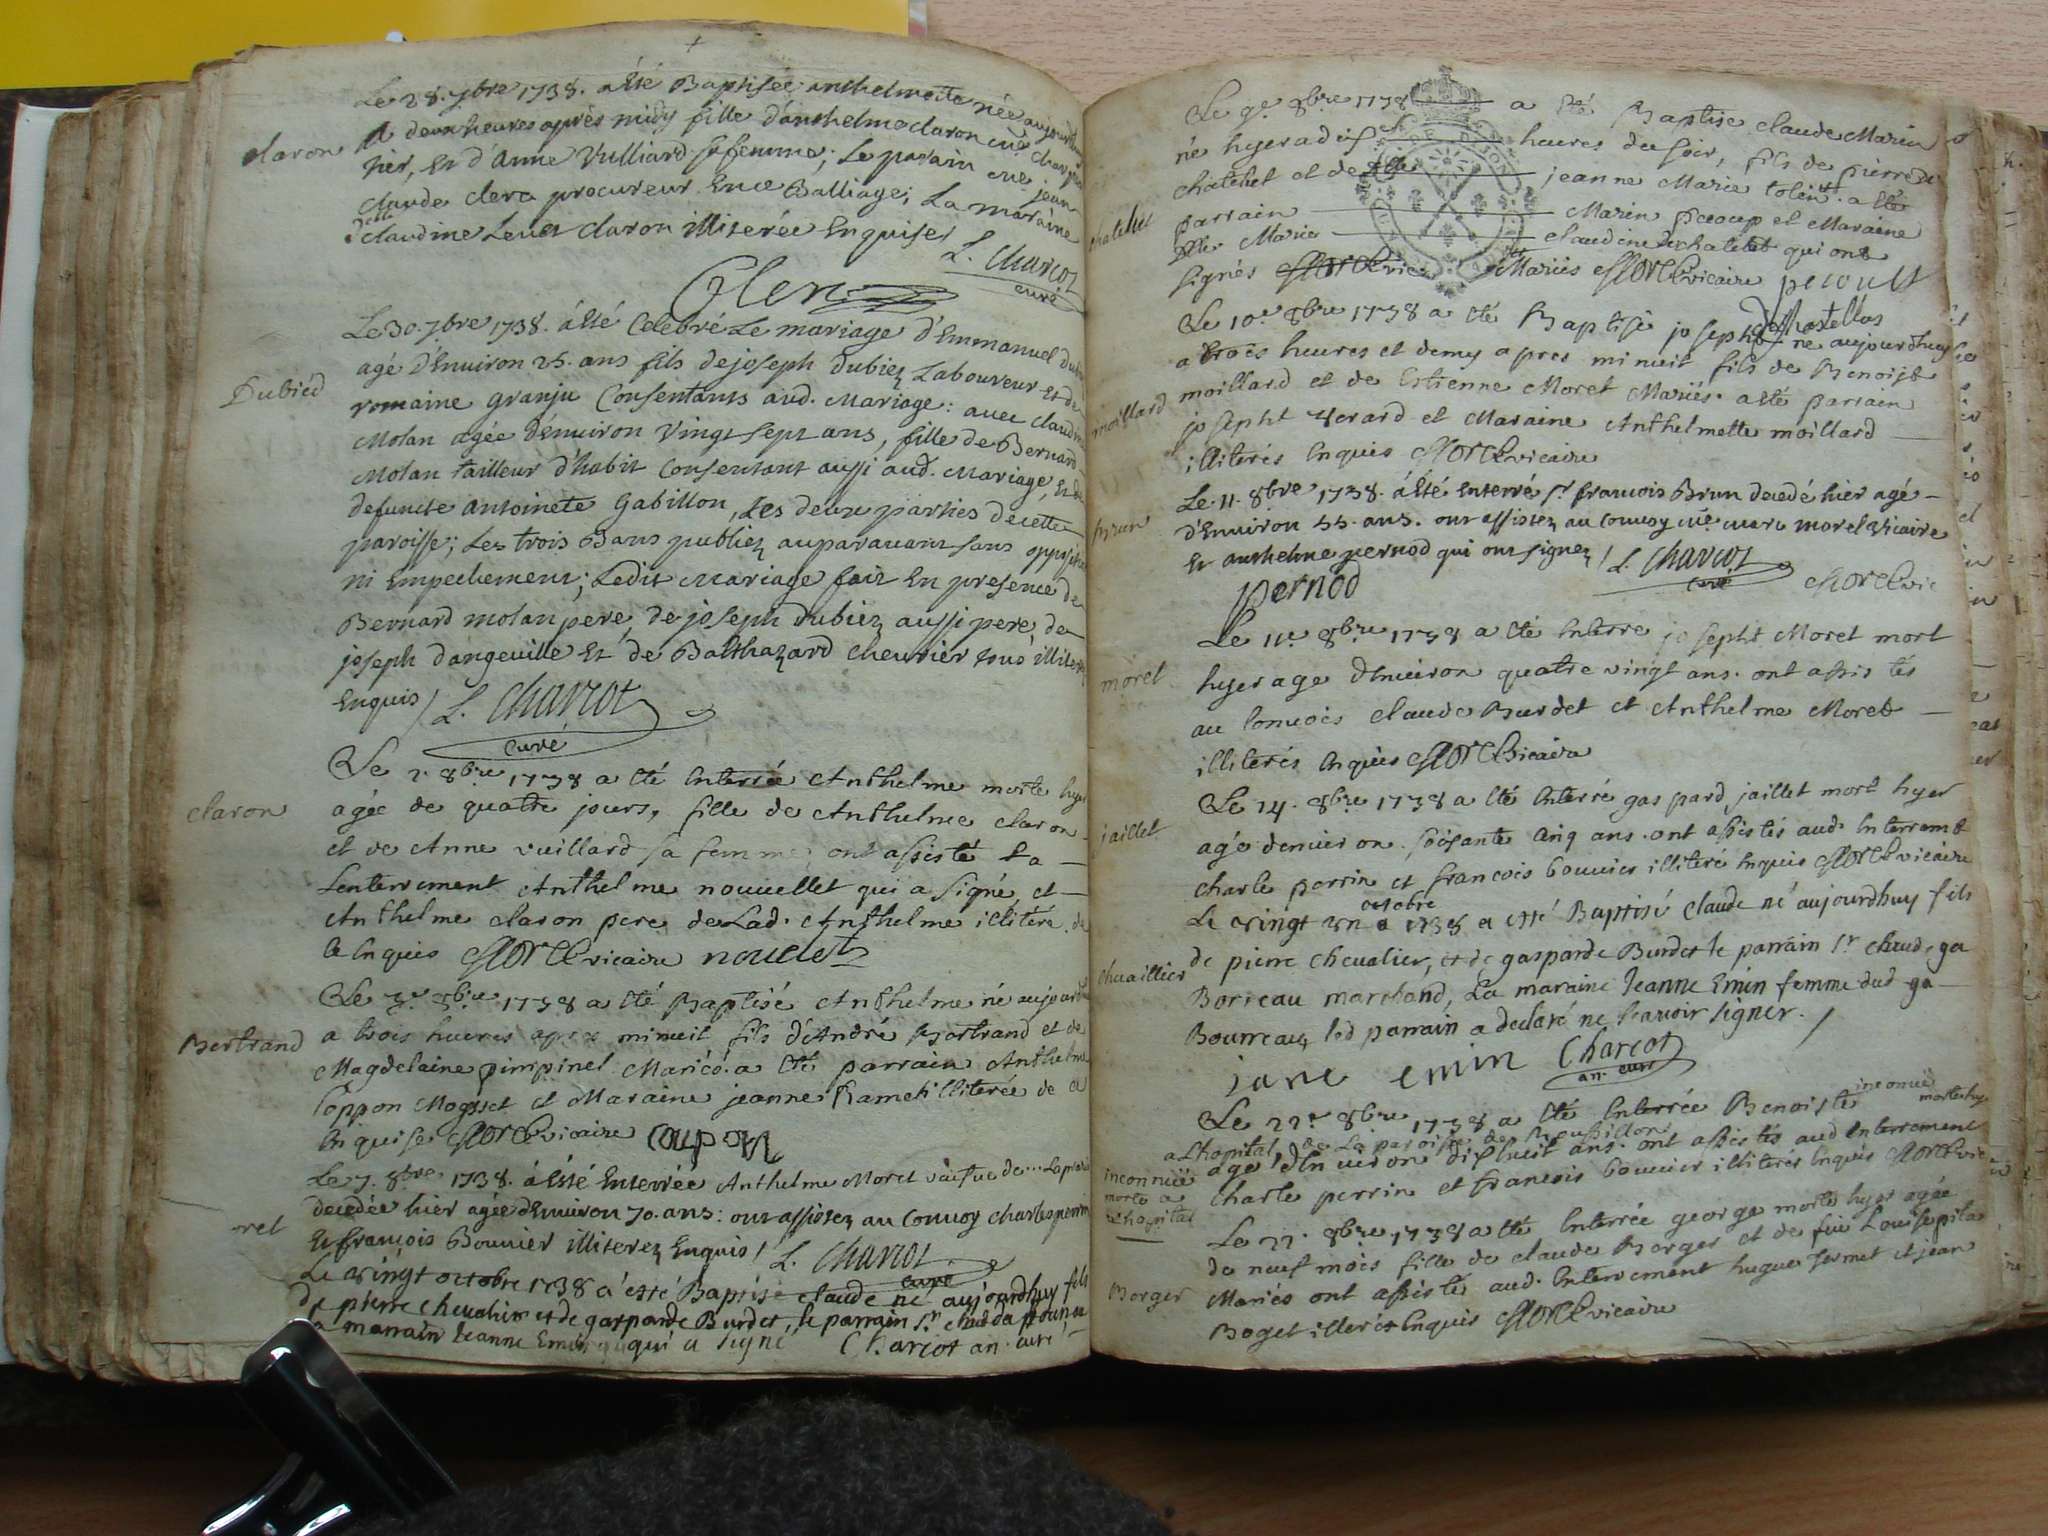 Le 28. 7bre 1738. a Esté Baptisée anthelmette née aujourdhuy
claron
a deux heures après midy fille d'anthelme claron me charpen
tier, Et d'Anne Vulliard sa femme; Le parain me jean
claude clerc procureur En ce Balliage; La maraine
delle claudine Leuet claron illiterée Enquise/
L. Charcot
curé
Clerc
Le 30. 7bre 1738. a Esté Celebré Le mariage d'Emmanuel dubie
Dubied
agé d'Environ 25. ans fils de joseph Dubiez Laboureur Et de
romaine granju Consentants aud. Mariage: avec claudine
Molan agée d'Environ Vingt sept ans, fille de Bernard
Molan tailleur d'habit Consentant aussi aud. Mariage, Et de
defuncte antoinete Gabillon, Les deux parties de cette
paroisse; Les trois Bans publiez auparavant sans opposition
ni Empechement; Ledit Mariage fait En presence de
Bernard molan pere, de joseph Dubiez aussi pere, de
joseph Dangeuille Et de Balthazard Cheurier tous illiterez
Enquis/ L. Charcot
curé
Le 2. 8bre 1738 a Eté Enterrée Anthelme morte hyer
claron
agée de quatre jours, fille de Anthelme claron
et de Anne vuillard sa femme ont assisté La
Lenterrement Anthelme nouuellet qui a signé et
Anthelme claron pere de Lad. Anthelme illitéré de
Ce Enquis Morel vicaire nouelet
Le 3e 8bre 1738 a Eté Baptisé Anthelme né aujourdhuy
Bertrand
a trois heures apres minuit fils d'André Bertrand et de
Magdelaine pimpinel Mariés. a Eté parrain Anthelme
Coppon et Maraine jeanne Ramel illiterée de Ce
Enquise Morel vicaire Coupon
Le 7. 8bre 1738. a Esté Enterrée Anthelme Moret veufve de ... Laprairi
decedée hier agée d'Environ 70. ans: ont assistez au Convoy Charles perrin
oret
Et francois Bouuier illiterez Enquis/ L. Charcot
curé
Le vingt octobre 1738 a esté Baptisé claude né aujourdhuy fils
de pierre cheualier et de gasparde Burdet, le parrain sr claude Bourreau
la marrain Jeanne Emin qui a signé Charcot an. curé
Le 9e 8bre 1738 a Eté Baptise claude Marien
né hyer a dix heures du soir, fils de pierre de
chatelet et de jeanne Marie tolin. a Eté
chatelet
parrain Marien pecoup et Maraine
Marie claudine de chatelet qui ont
signés Mariés Morel vicaire pecoult
Dechastellus
Le 10e 8bre 1738 a Eté Baptisé joseph né aujourdhuy
a trois heures et demy apres minuit fils de Benoist
moillard
moillard et de Estienne Moret Mariés. a Eté parrain
josepht Uerard et Maraine Anthelmette moillard
illiterés Enquis Morel vicaire
Le 11. 8bre 1738. a Esté Enterré sr francois Brun decedé hier agé
brun
d'Environ 55. ans. ont assistez au Convoy me marc morel Vicaire
Et anthelme pernod qui ont signez/ L. Charcot
curé
pernod
Morel vic
Le 11e 8bre 1738 a Eté Enterre josepht Moret mort
moret
hyer age d'Enuiron quatre vingt ans. ont assistés
au Conuois claude Burdet et Anthelme Moret
illiterés Enquis Morel Vicaire
Le 14. 8bre 1738 a Eté Enterré gaspard jaillet mort hyer
jaillet
agé denuiron soisante Cinq ans. ont assistés aud. Enterremt
charle perrin et francois bouuier illiteré Enquis Morel vicaire
octobre
Le vingt un 1738 a esté Baptisé Claude né aujourdhuy fils
chuaillier
de pierre cheualier, et de gasparde Burdet le parrain sr claude ga
Borreau marchand, La maraine Jeanne Emin femme dud ga
Bourreau, led parrain a declaré ne sçavoir signer./
jane emin Charcot
an. curé
Le 22e 8bre 1738 a Eté Enterrée Benoiste inconnue morte hyer
a Lhopital, de La paroisse de Roussillon
inconnuë
morte a
Lhopital
age d'Enuiron dixhuit ans. ont assistés aud Enterrement
charle perrin et francois bouuier illiterés Enquis Morel vic
Le 27. 8bre 1738 a Eté Enterrée george morte hyer agée
de neuf mois fille de claude Berger et de feüe Louise pila
Berger
Mariés ont assisté aud. Enterrement hugue fermet et jean
Boget illerés Enquis Morel vicaire